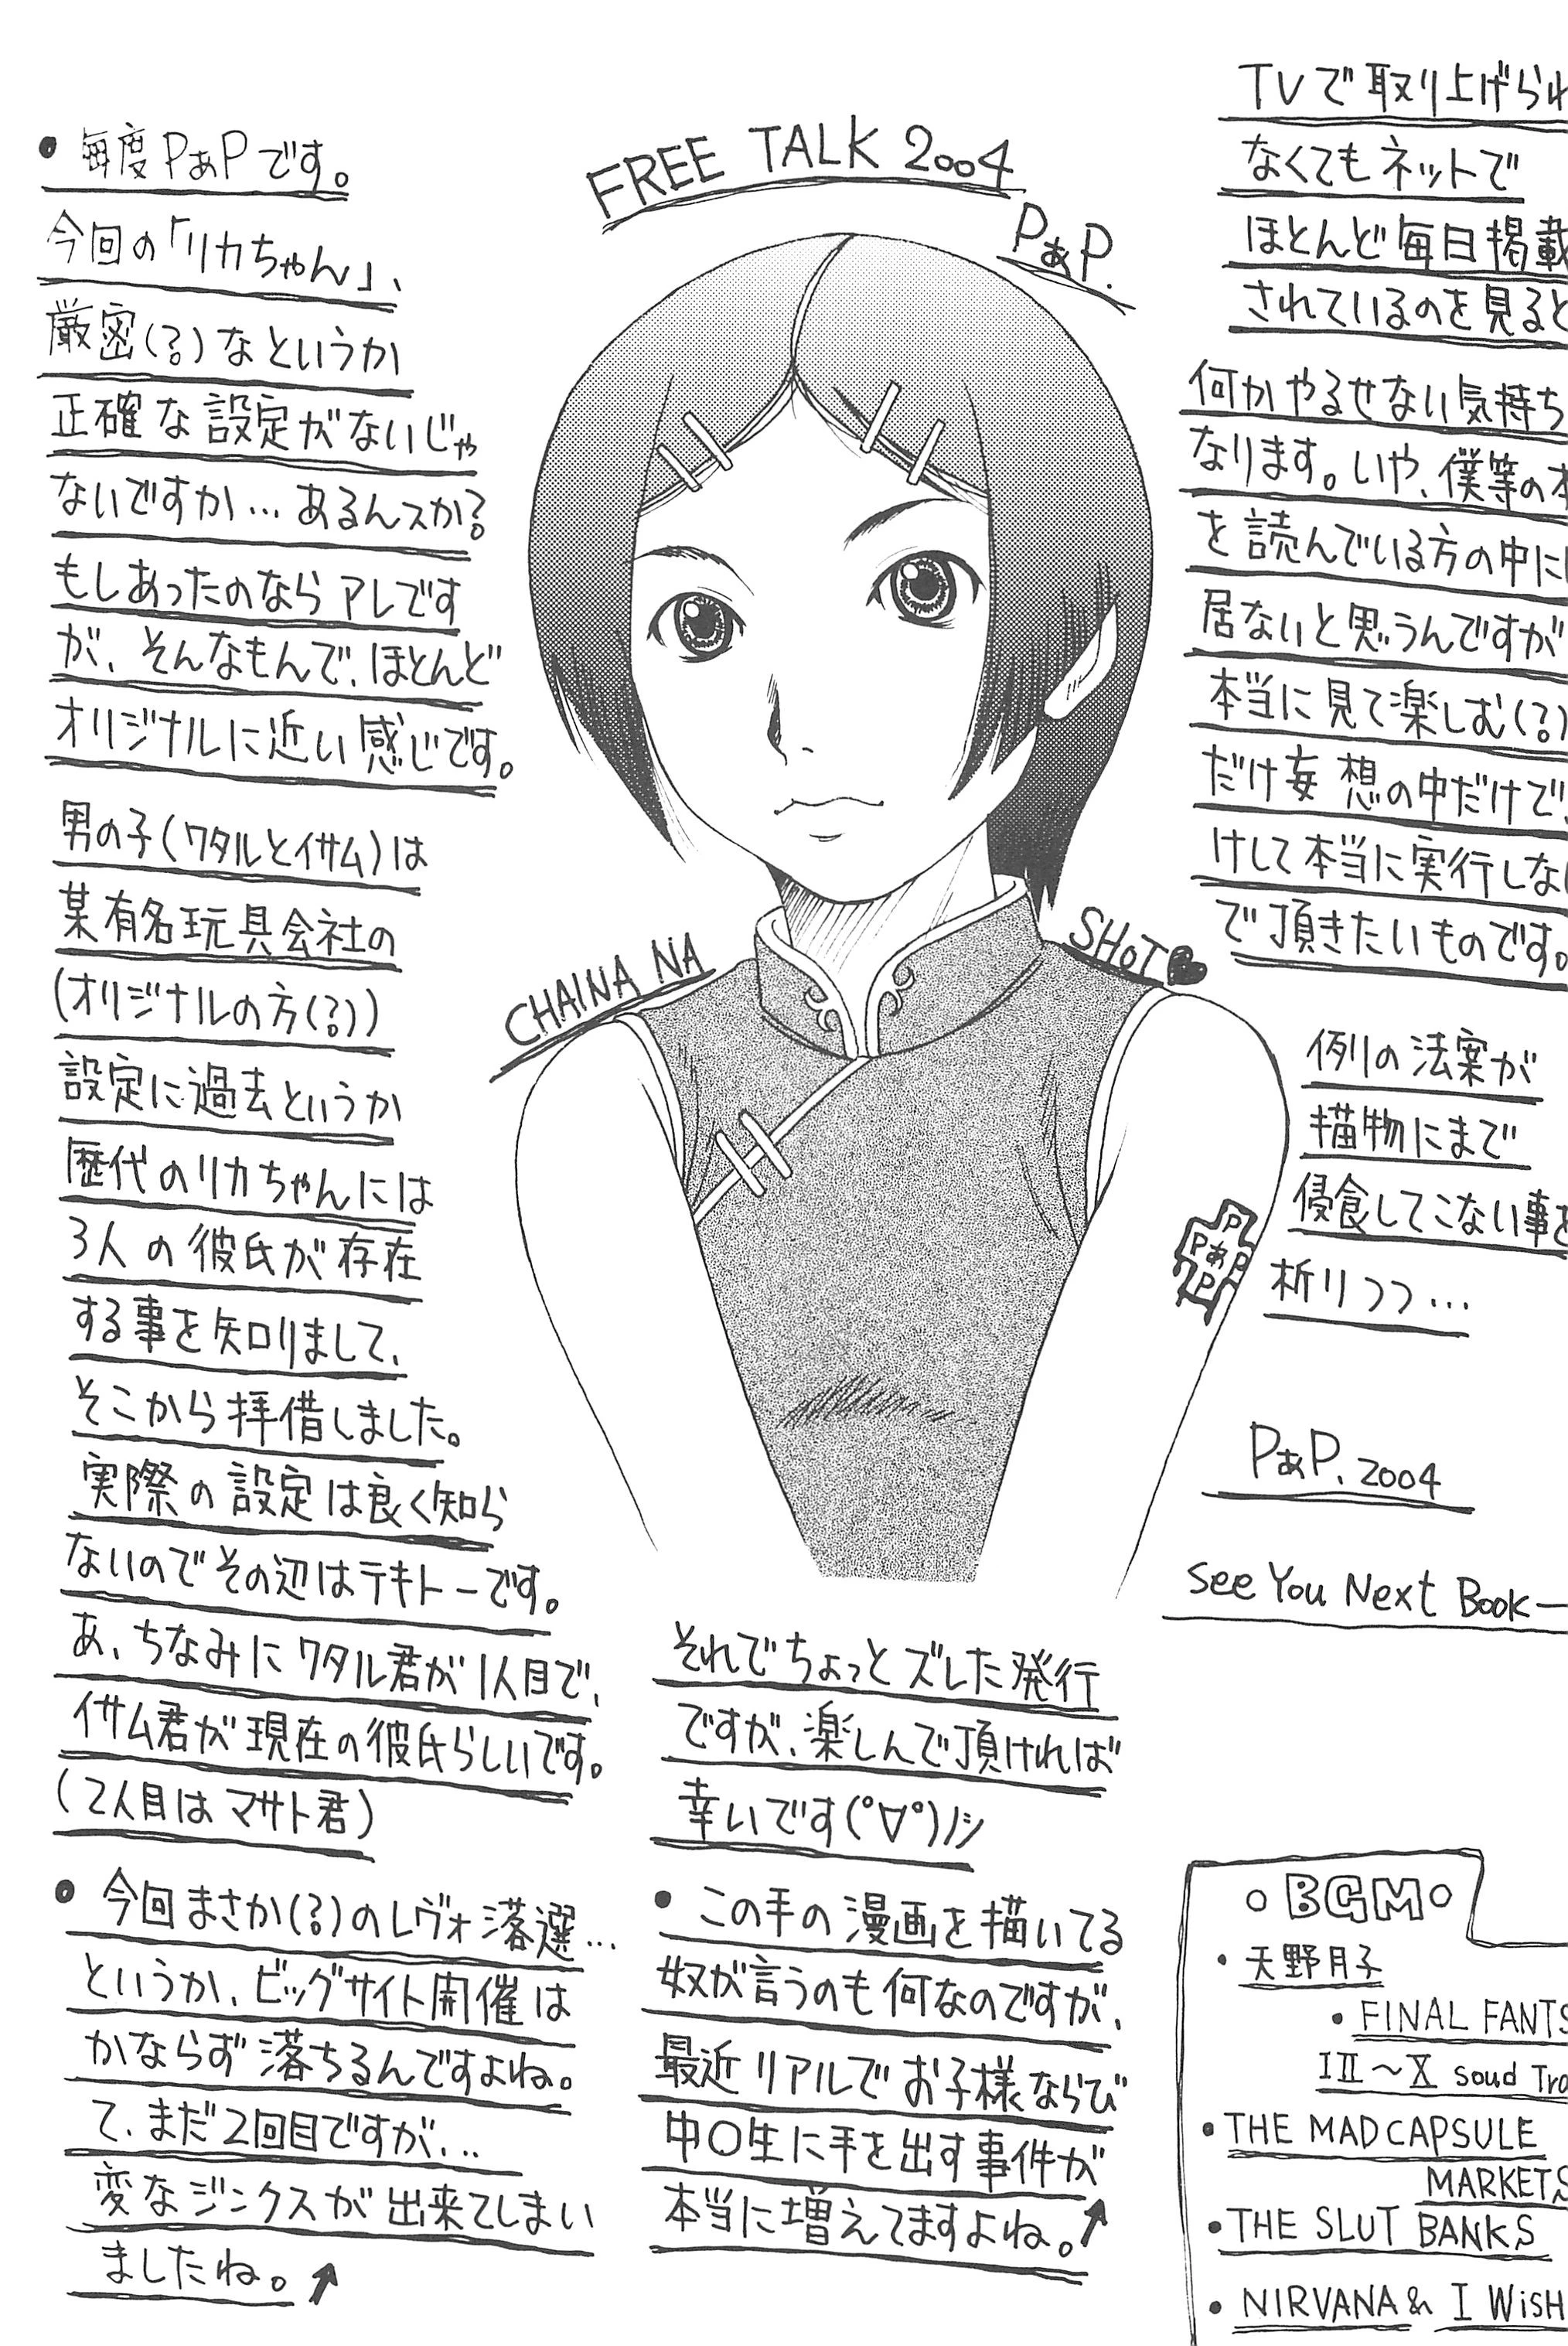 FREE TALK 2004
PぁP.
• 毎度PぁPです。
今回の「リカちゃん」、
厳密(?)なというか
正確な設定がないじゃ
ないですか…あるんスか?
もしあったのならアレです
が、そんなもんで、ほとんど
オリジナルに近い感じです。
男の子(ワタルとイサム)は
某有名玩具会社の
(オリジナルの方(?))
設定に過去というか
歴代のリカちゃんには
3人の彼氏が存在
する事を知りまして、
そこから拝借しました。
実際の設定は良く知ら
ないのでその辺はテキトーです。
あ、ちなみにワタル君が1人目で、
イサム君が現在の彼氏らしいです。
(2人目はマサト君)
• 今回まさか(?)のレヴォ落選…
というか、ビッグサイト開催は
かならず落ちるんですよね。
て、まだ2回目ですが…
変なジンクスが出来てしまい
ましたね。↗
それでちょっとズレた発行
ですが、楽しんで頂ければ
幸いです(゜∀゜)ノシ
• この手の漫画を描いてる
奴が言うのも何なのですが、
最近リアルでお子様ならび
中〇生に手を出す事件が
本当に増えてますよね。↗
TVで取り上げられ
なくてもネットで
ほとんど毎日掲載
されているのを見ると
何かやるせない気持ち
なります。いや、僕等の本
を読んでいる方の中に
居ないと思うんですが
本当に見て楽しむ(?)
だけ妄想の中だけで、
けして本当に実行しない
で頂きたいものです。
例の法案が
描物にまで
侵食してこない事を
祈りつつ…
PぁP. 2004
See You Next Book—
CHAINA NA
SHOT♥
P
PぁP
P
○BGM○
• 天野月子
• FINAL FANTS
I II～X soud Tra
• THE MAD CAPSULE
MARKETS
• THE SLUT BANKS
• NIRVANA & I WiSH